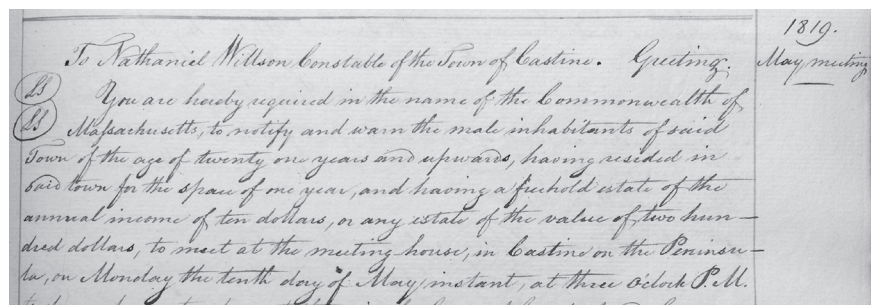 1819.
To Nathaniel Willson Constable of the Town of Castine. Greeting.
May meeting
LS
You are hereby required in the name of the Commonwealth of
LS
Massachusetts, to notify and warn the male inhabitants of said
Town of the age of twenty one years and upwards, having resided in
said town for the space of one year, and having a freehold estate of the
annual income of ten dollars, or any estate of the value of two hun-
dred dollars, to meet at the meeting house, in Castine on the Peninsu-
la, on Monday the tenth day of May instant, at three o'clock P.M.